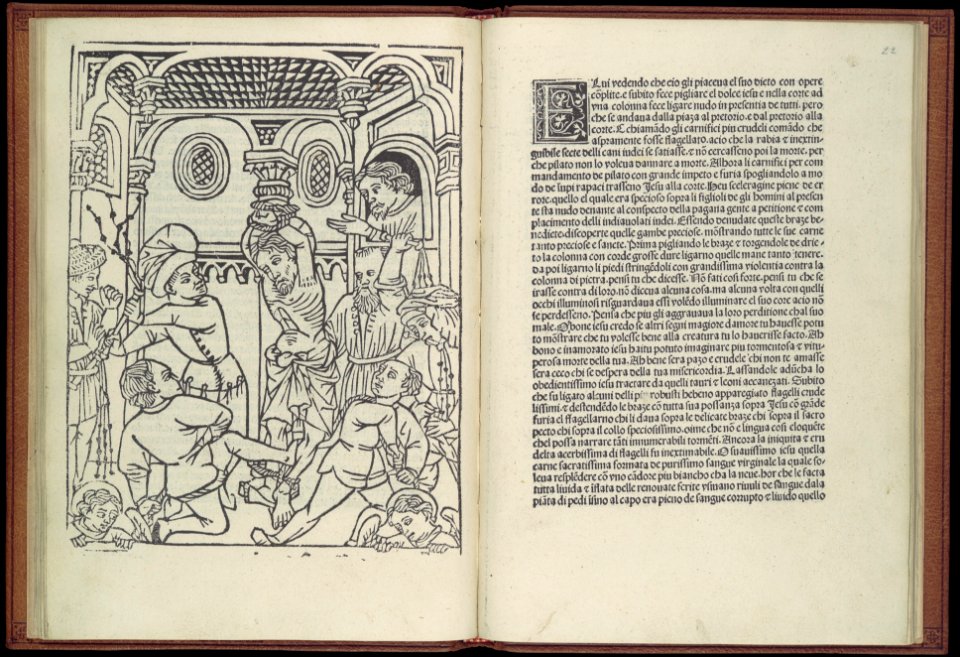 22
ELui vedendo che cio gli piaceua el suo dicto con opere
cōplite.e subito fece pigliare el dolce iesu e nella corte ad
vna colonna fece ligare nudo in presentia de tutti. pero
che se andaua dalla piaza al pretorio.e dal pretorio alla
corte. E chiamādo gli carnifici piu crudeli comādo che
aspramente fosse flagellato.acio che la rabia e inextin
guibile secte delli cani iudei se satiasse.e nō cercasseno poi la morte.per
che pilato non lo voleua dannare a morte. Alhora li carnifici per com
mandamento de pilato con grande impeto e furia spogliandolo a mo
do de lupi rapaci trasseno Iesu alla corte. Heu sceleragine piene de er
rore.quello el quale era specioso sopra li figlioli de gli homini al presen
te sta nudo denante al conspecto della pagana gente a petitione e com
placimento delli indiauolati iudei. Essendo denudate queste braze be
nedicte.discoperte quelle gambe preciose. mostrando tutte le sue carne
tanto preciose e sancte. Prima pigliando le braze e torgendole de drie
to la colonna con corde grosse dure ligarno quelle mane tanto tenere.
da poi ligarno li piedi stringēdoli con grandissima violentia contra la
colonna di pietra.pensi tu che dicesse. Nō fati cosi forte.pensi tu che se
irasse contra di loro.nō diceua alcuna cosa.ma alcuna volta con quelli
occhi illuminosi risguardaua essi volēdo illuminare el suo core acio nō
se perdesseno. Pensa che piu gli aggrauaua la loro perditione chal suo
male. O bone iesu credo se altri segni magiore damore tu hauesse potu
to mōstrare che tu volesse bene alla creatura tu lo hauerisse facto. Ah
bono e inamorato iesu hai tu potuto imaginare piu tormentosa e vitu
perosa morte della tua. Ah bene sera pazo e crudele chi non te amasse
sera ceco chi se despera della tua misericordia. Lassandole adūcha lo
obedientissimo iesu tractare da quelli tauri e leoni accanezati. Subito
che su ligato alcuni delli piu robusti hebeno apparegiato flagelli crude
lissimi.e destendēdo le braze cō tutta sua possanza sopra Iesu cō grāde
furia el flagellarno chi li daua sopra le delicate braze chi sopra il sacro
pecto chi sopra il collo speciosissimo.oime che nō e lingua cosi eloquēte
chel possa narrare tāti innumerabili tormēti. Ancora la iniquita e cru
delta acerbissima di flagelli fu inextimabile. O suauissimo iesu quella
carne sacratissima formata de purissimo sangue virginale la quale so
leua resplēdere cō vno cādore piu biancho cha la neue.hor che le facta
tutta liuida e iflata delle renouate ferite vsiuano riuuli de sangue dala
piāta di pedi isino al capo era pieno de sangue corrupto e liuido quello